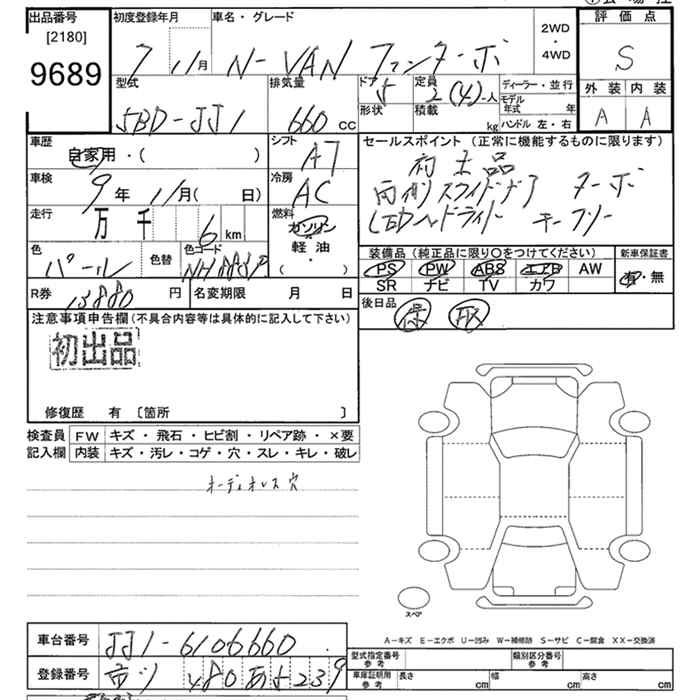 出品番号
[2180]
9689
初度登録年月
7 11月
車名・グレード
N-VAN ファン ターボ
2WD
・
4WD
評価点
S
外装 内装
A A
型式
5BD-JJ1
排気量
660 cc
ドア 5
形状
定員 2(4)人
積載 kg
ディーラー・並行
モデル年式 年
ハンドル 左・右
車歴
自家用・( )
シフト
AT
車検
9年11月( 日)
冷房
AC
走行
万 千 6 km
燃料
ガソリン
軽油
・
( )
色
パール
色替
色コード
NH883P
R券
13880 円
名変期限 月 日
セールスポイント (正常に機能するものに限ります)
初出品
両側スライドドア ターボ
LEDヘッドライト キーフリー
装備品 (純正品に限り○をつけてください)
新車保証書
PS PW ABS エアB AW
SR ナビ TV カワ
有・無
後日品
保 取
注意事項申告欄 (不具合内容等は具体的に記入して下さい)
初出品
修復歴 有 [箇所 ]
検査員
記入欄
FW キズ・飛石・ヒビ割・リペア跡・×要
内装 キズ・汚レ・コゲ・穴・スレ・キレ・破レ
オーディオレス穴
スペア
A-キズ E-エクボ U-凹み W-補修跡 S-サビ C-腐食 XX-交換済
車台番号
JJ1-6106660
登録番号
480 あ 5239
型式指定番号
参考
類別区分番号
参考
車庫証明用
参考
長さ cm
幅 cm
高さ cm